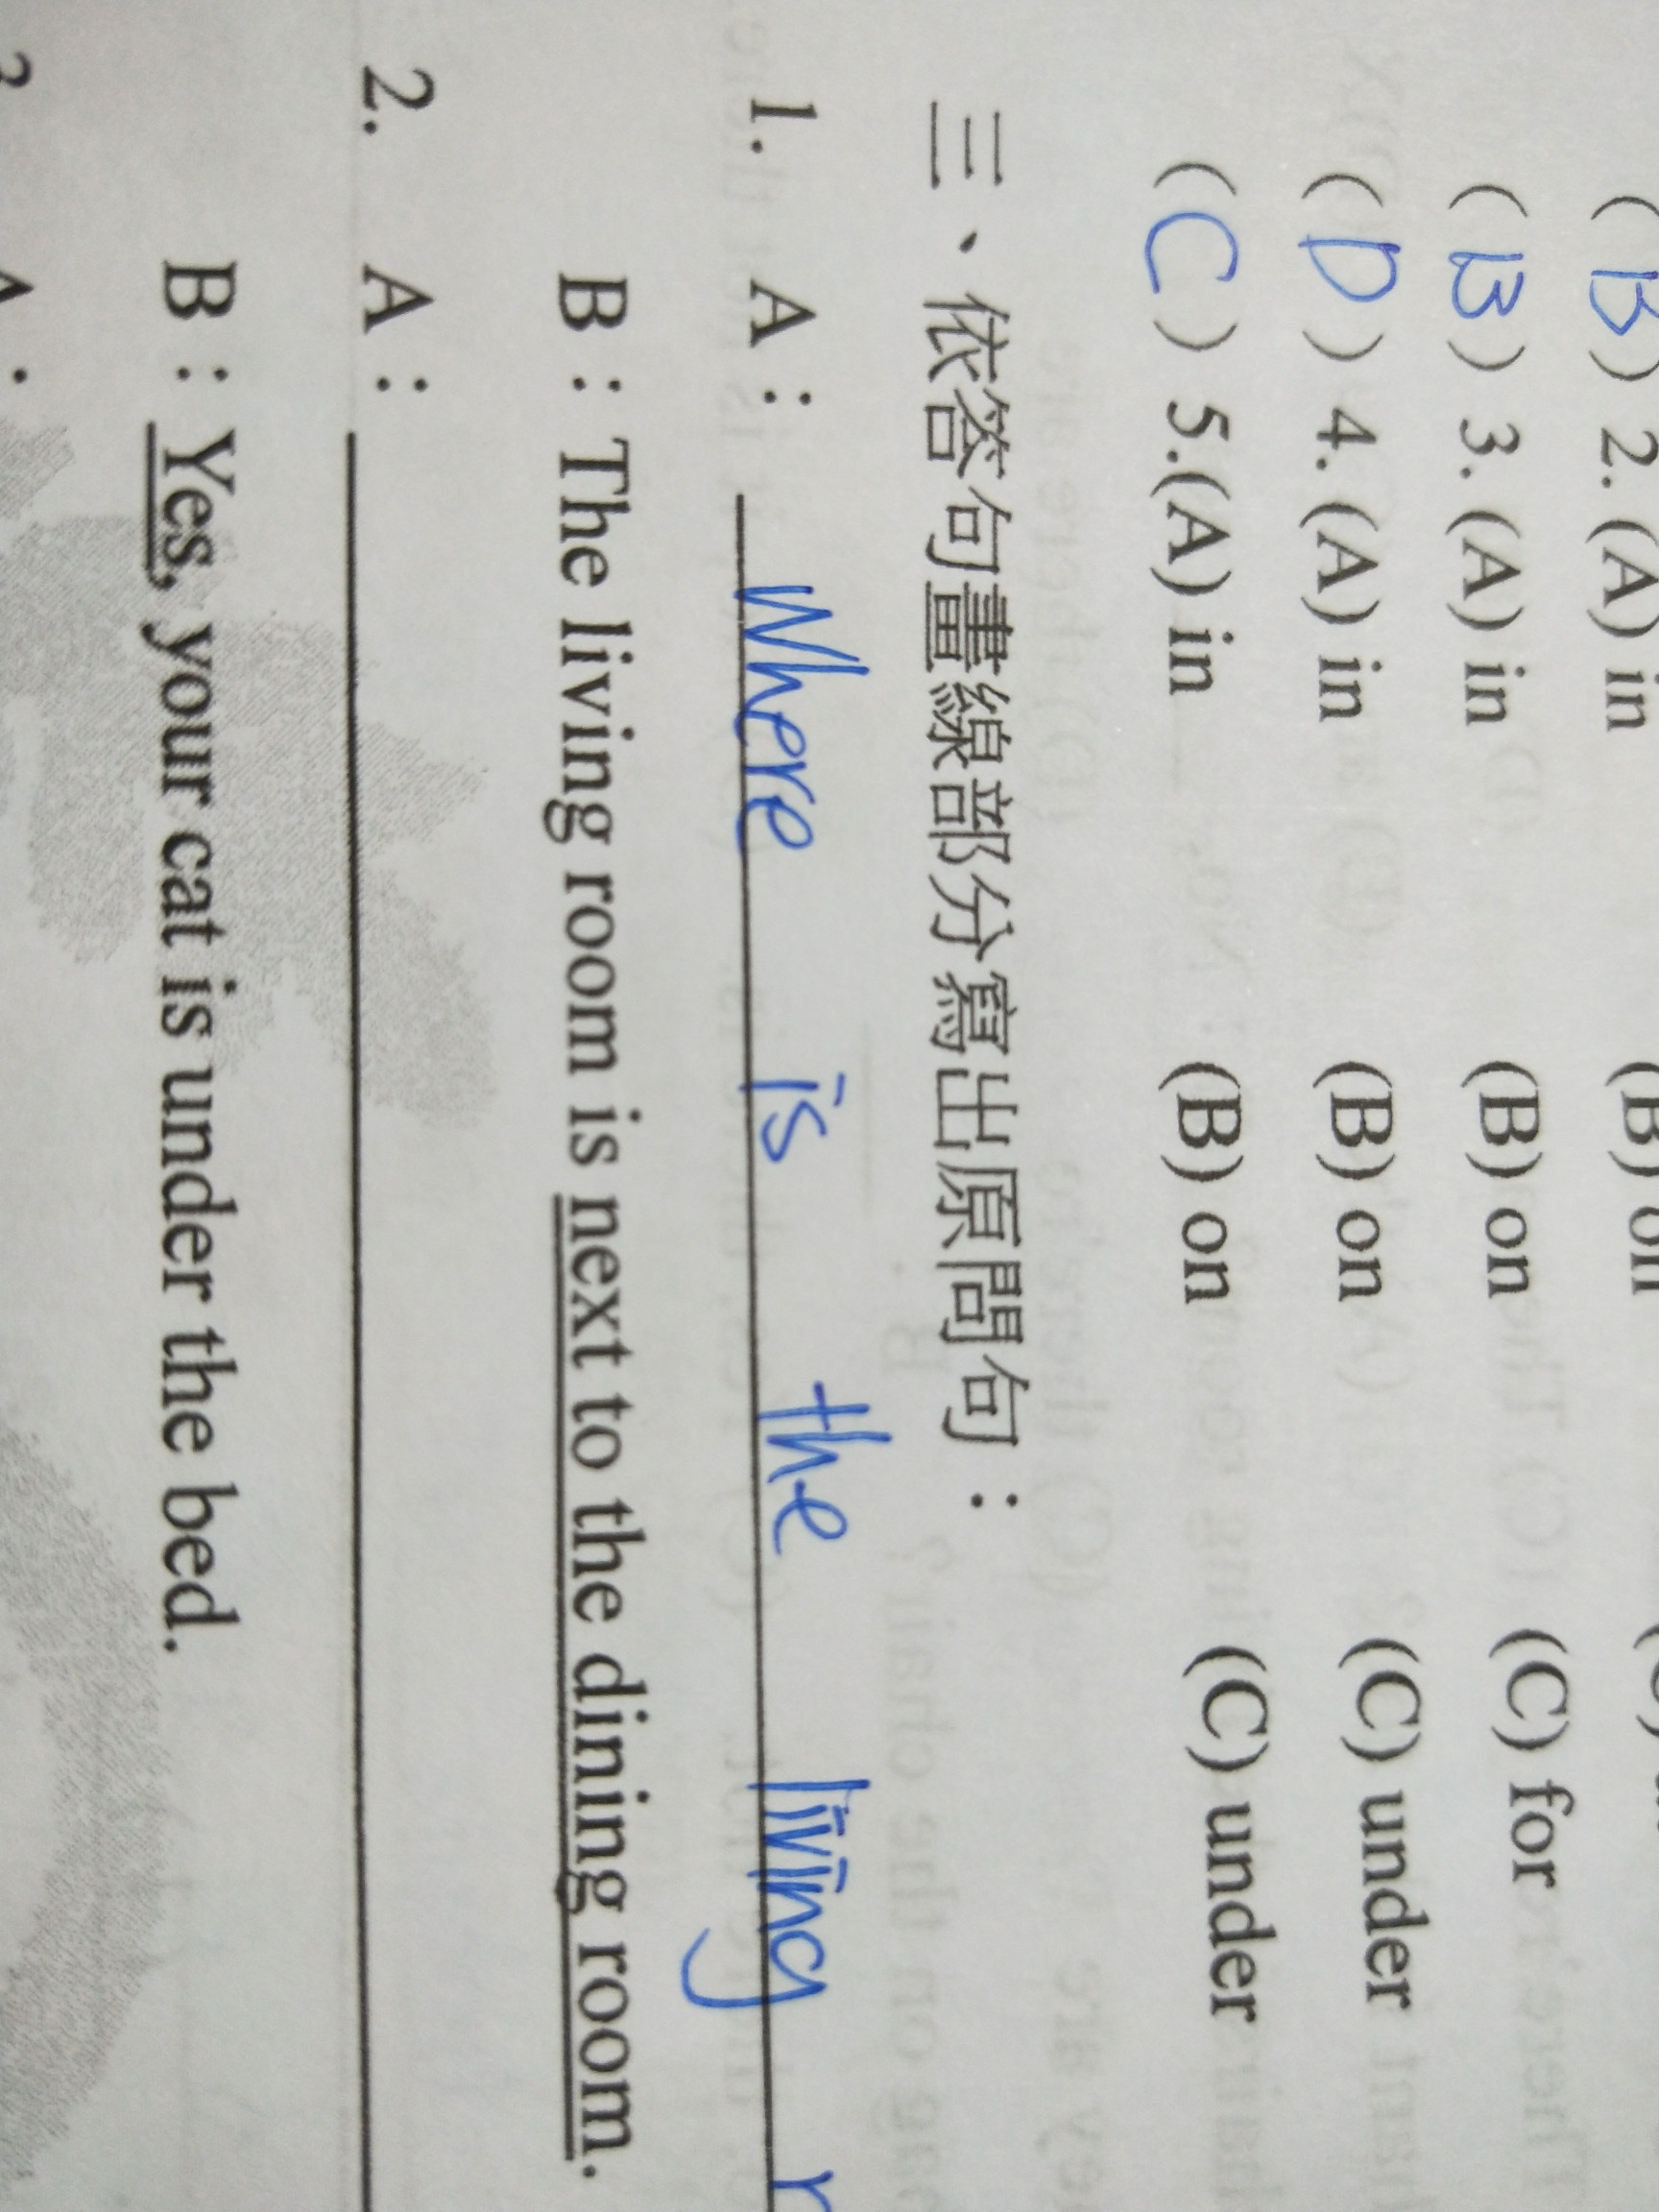 (B) 2. (A) in (B) on
(B) 3. (A) in (B) on (C) for
(D) 4. (A) in (B) on (C) under
(C) 5.(A) in (B) on (C) under
三、依答句畫線部分寫出原問句：
1. A： Where is the living
B：The living room is next to the dining room.
2. A：
B：Yes, your cat is under the bed.
3. A：